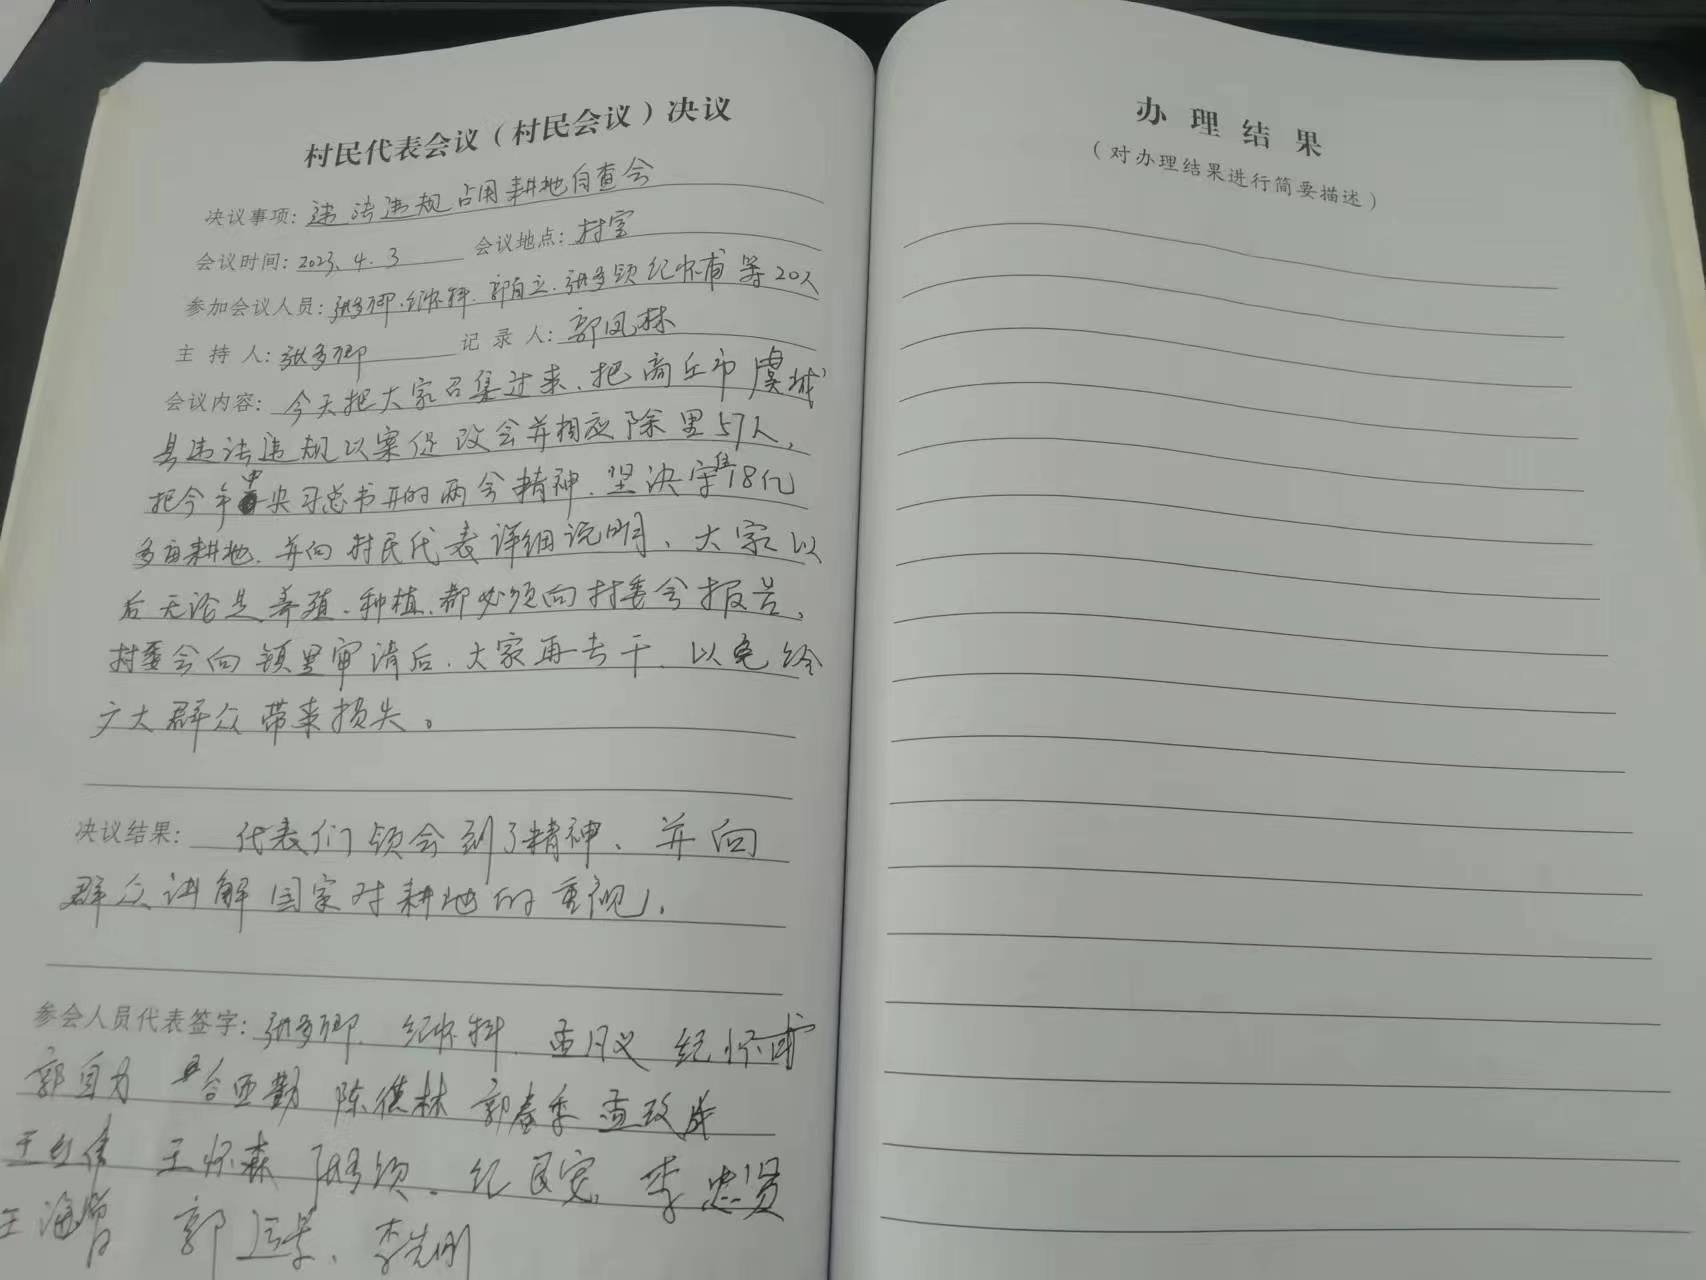 村民代表会议（村民会议）决议
决议事项：违法违规占用耕地自查会
会议时间：2023.4.3 会议地点：村室
参加会议人员：张多卿、纪怀科、郭自立、张多领 纪怀甫 等20人
主持人：张多卿 记录人：郭凤林
会议内容：今天把大家召集过来、把商丘市虞城
县违法违规以案促改会并相应除里57人，
把今年中央习总书开的两会精神、坚决守住18亿
多亩耕地、并向村民代表详细说明、大家以
后无论是养殖、种植、都必须向村委会报告，
村委会向镇里审请后、大家再去干、以免给
广大群众带来损失。
决议结果：代表们领会到了精神、并向
群众讲解国家对耕地的重视，
参会人员代表签字：张多卿、纪怀科、孟月义 纪怀甫
郭自力 亚勤 陈 林 郭春季 孟改成
王红伟 王怀森 张多领、纪民宪、李忠贤
王海 郭运景、李先刚
办理结果
（对办理结果进行简要描述）